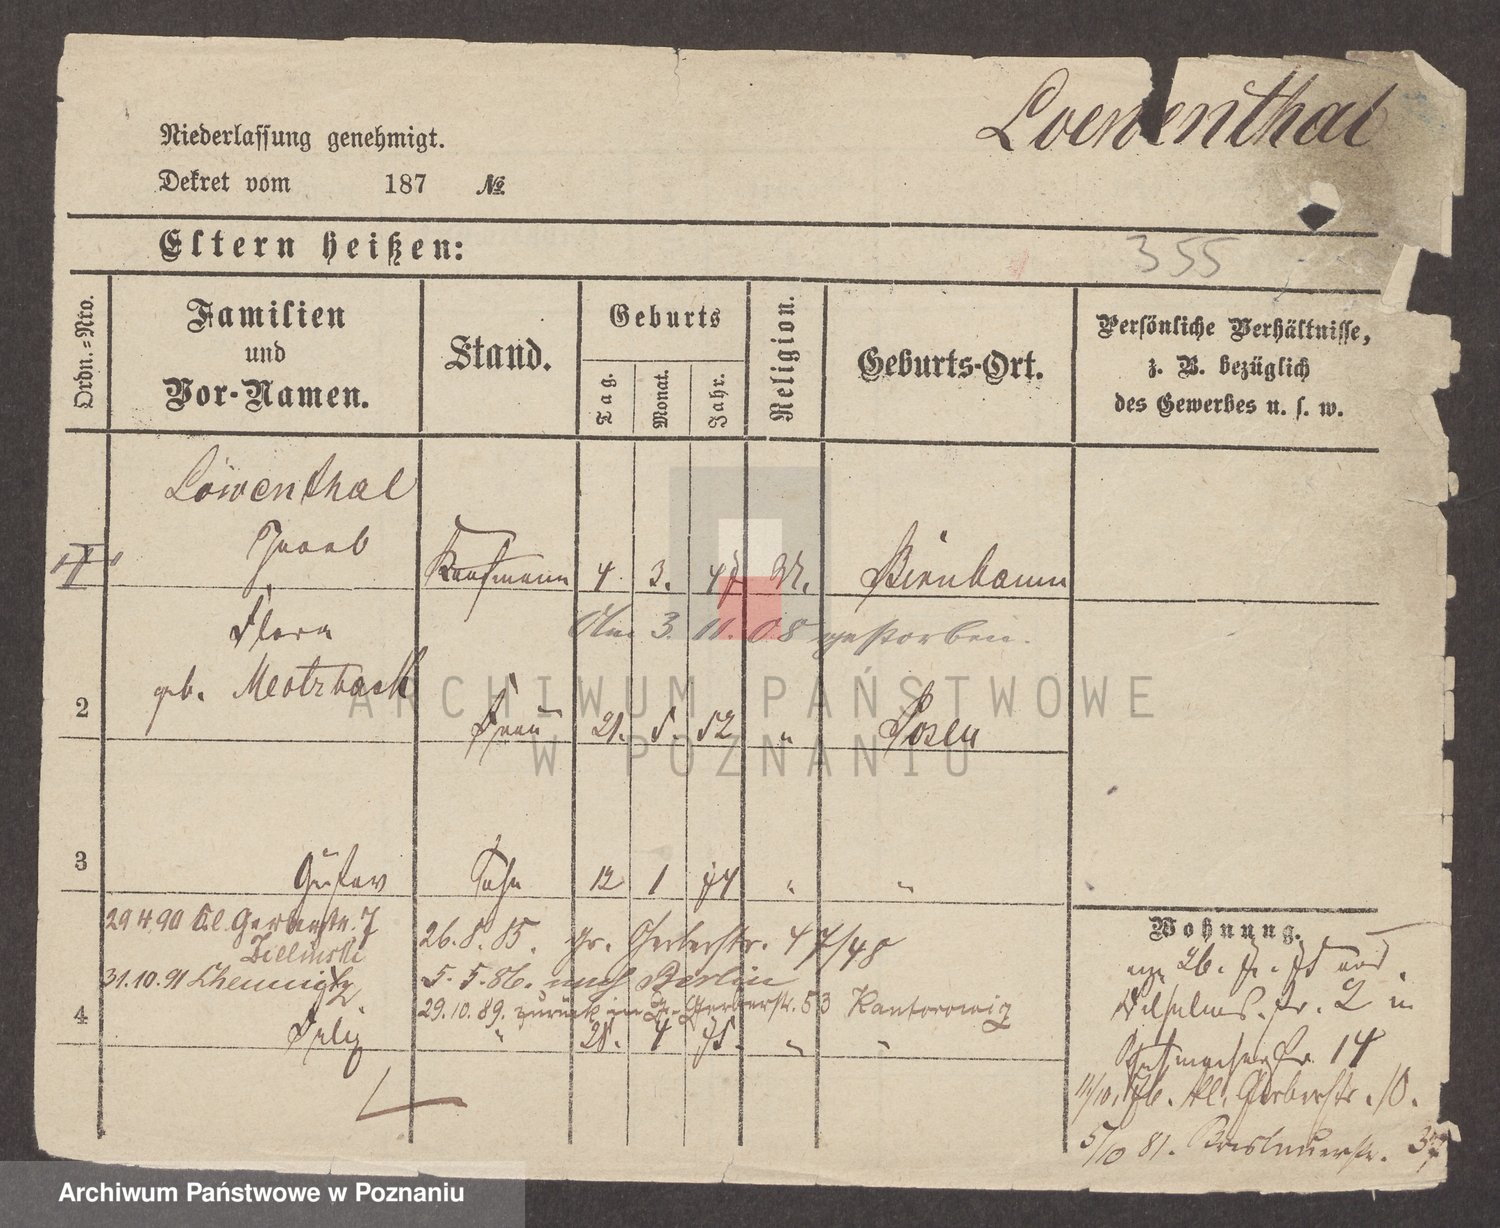 Loewenthal
Niederlassung genehmigt.
Dekret vom 187 No.
Eltern heißen:
355
Ordn.-Nro.
Familien
und
Vor-Namen.
Stand.
Geburts
Tag.
Monat.
Jahr.
Religion.
Geburts-Ort.
Persönliche Verhältnisse,
z. B. bezüglich
des Gewerbes u. s. w.
Löwenthal
Jacob Kaufmann 4 3. 47 Birnbaum
Flora Am 3. 11. 08 gestorben.
geb.
2 Frau 21. 5. 52 " Posen
3 Gustav Sohn 12 1 74 " "
29 4 90 Kl. Gerberstr. 7
Zielinski
26. 8. 85. Gr. Gerberstr. 47/48
31.10.91 Chemnitz
5. 5. 86. nach Berlin
29. 10. 89. zurück in Gr. Gerberstr. 53 Kantorowicz
4 Felix " 28. 4 75. " "
Wohnung.
Wilhelms. Str. 2 in
14
Kl. Gerberstr. 10.
5/10 81. Breslauerstr. 37
ARCHIWUM PAŃSTWOWE
W POZNANIU
Archiwum Państwowe w Poznaniu